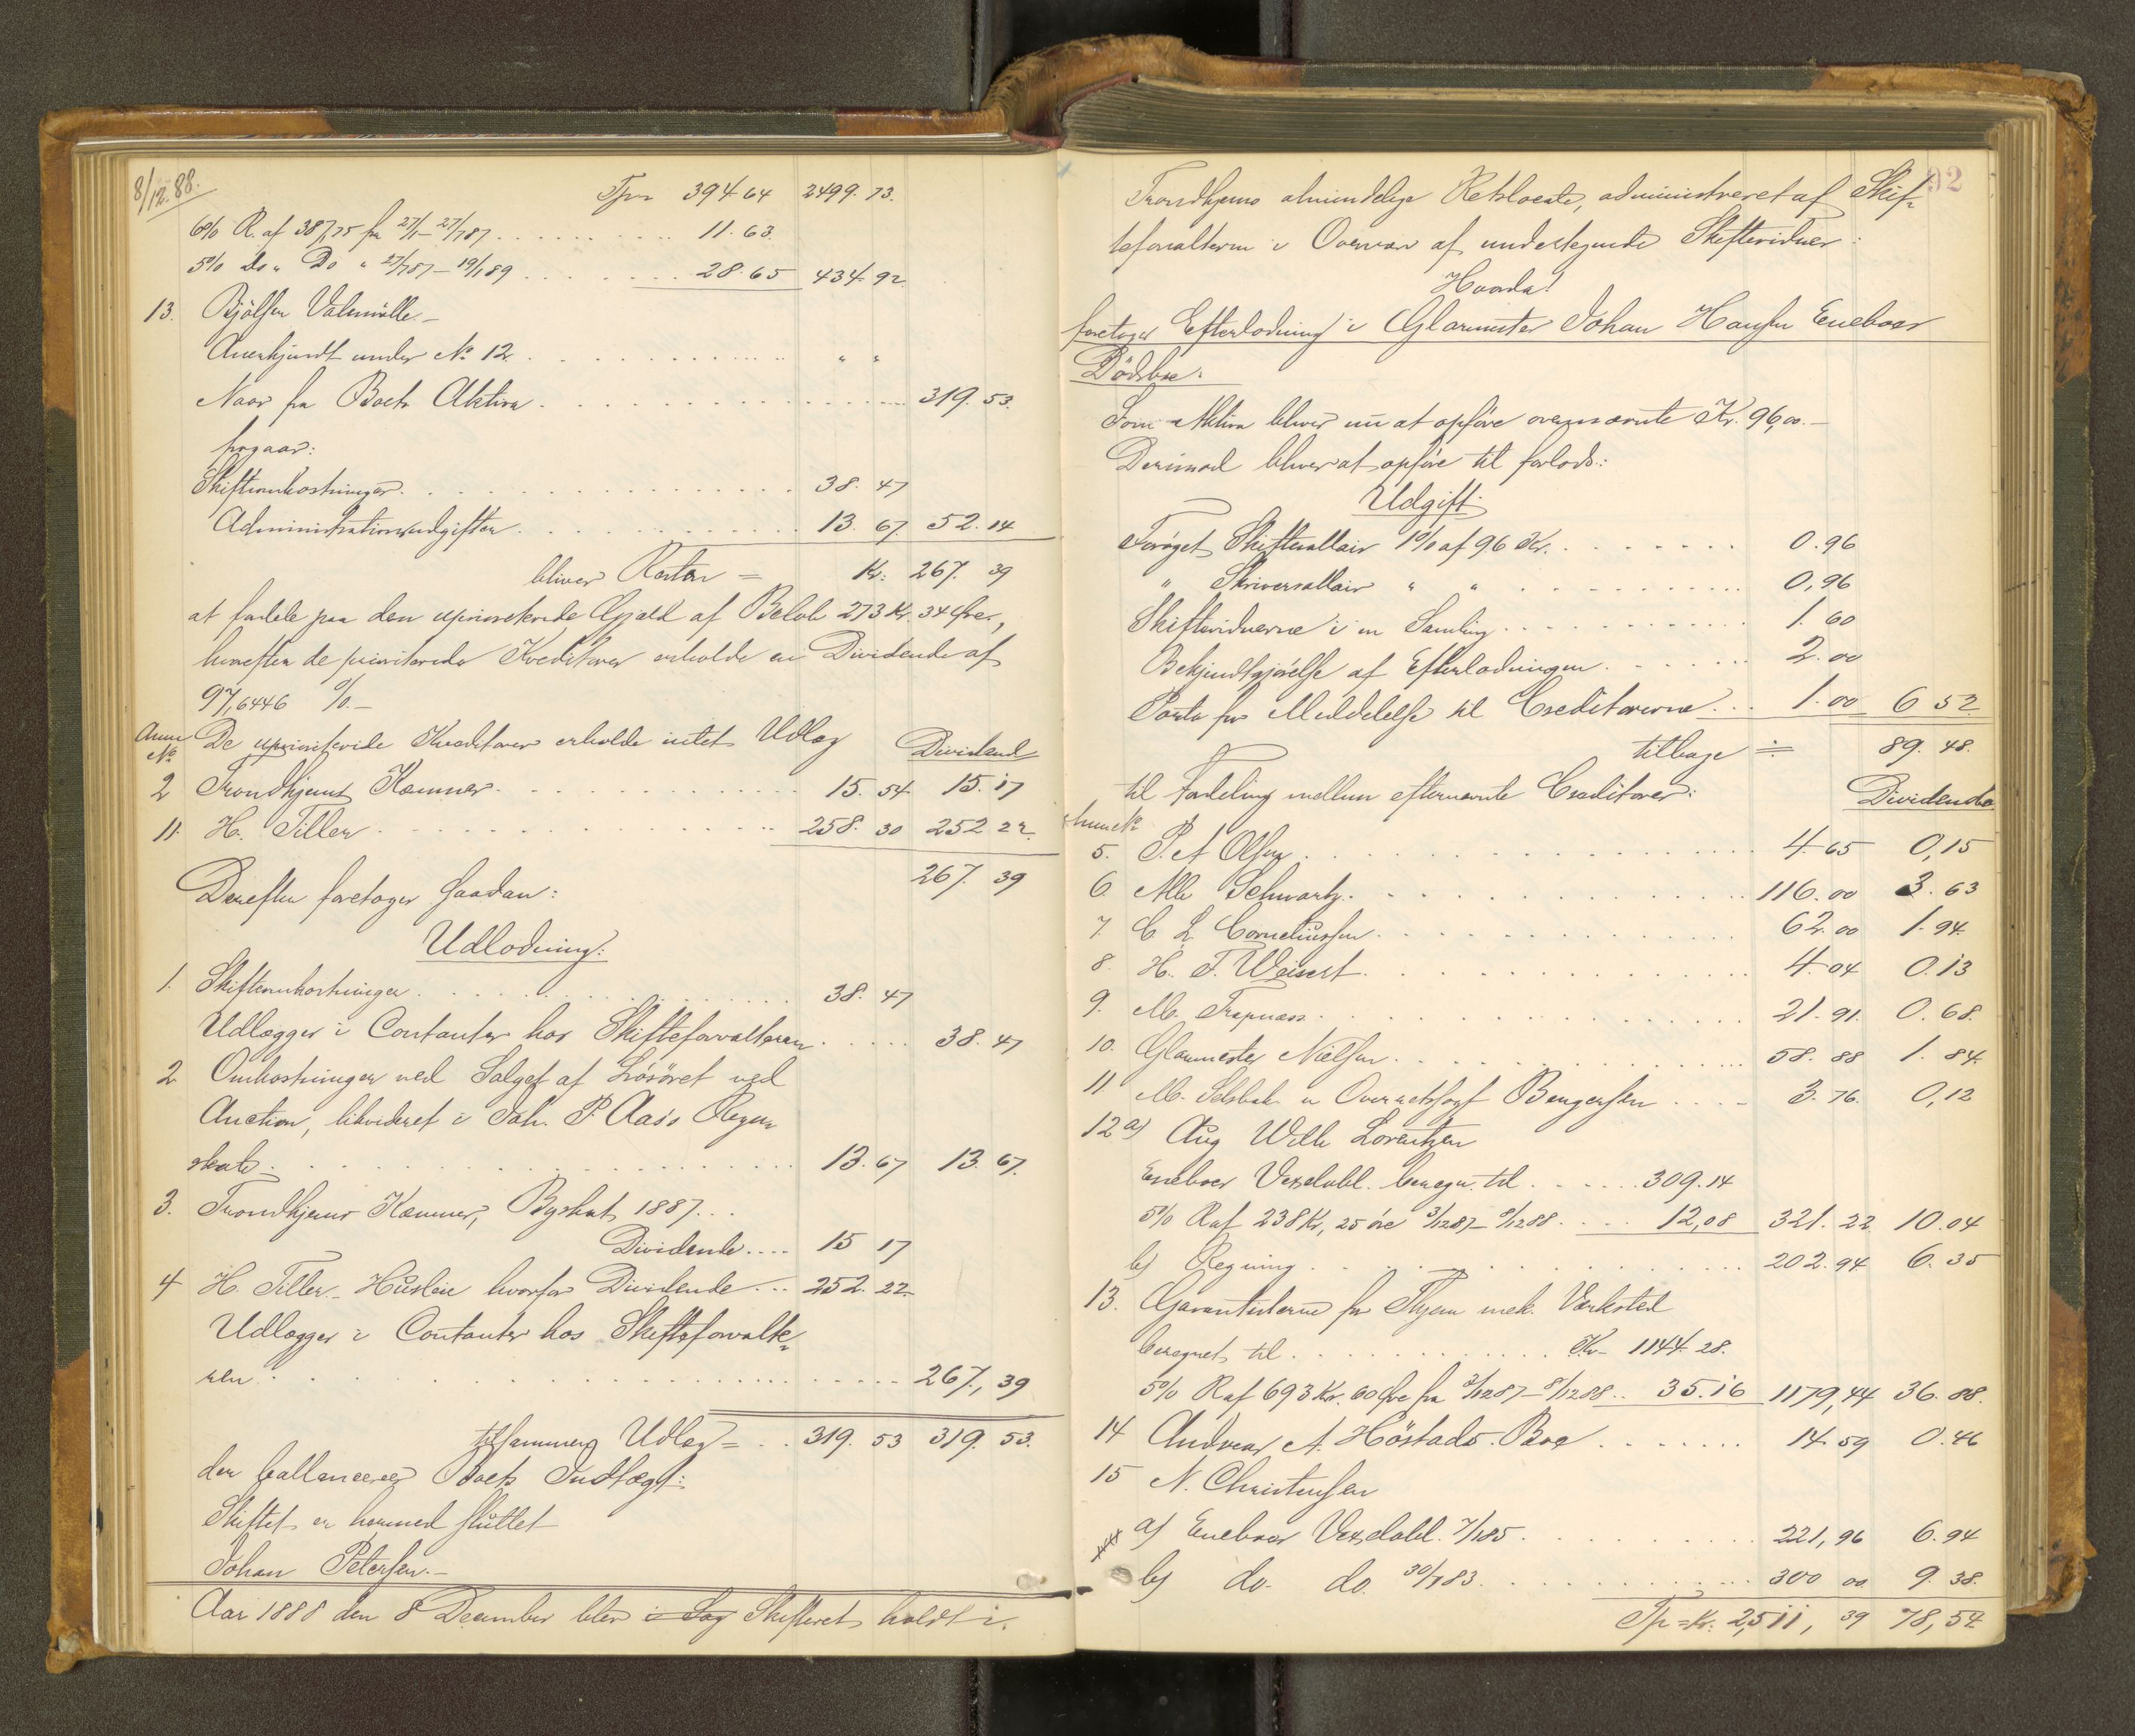 8/12.88.
Tpr 394.64 2499.73.
6% R. af 387,75 fra 27/1–27/7 87 11.63.
5% Do „ Do „ 27/7 87–19/1 89 28.65 434.92
13. Bjölsen Valsemölle.–
Anerkjendt under № 12. „ „
Naar fra Boets Aktiva 319.53.
fragaar:
Skifteomkostninger 38.47
Administrationsudgifter 13.67. 52.14
bliver Resten = Kr. 267.39
at fordele paa den uprioriterede Gjæld af Beløb 273 Kr. 34 Øre,
hvorefter de prioriterede Kreditorer erholde en Dividende af
97,6446 %.–
Anm № De uprioriterede Kreditorer erholde intet Udlæg Dividend
2 Trondhjems Kæmner 15.54 15.17
11. H. Tiller 258.30 252 22.
267.39
Derefter foretoges saadan:
Udlodning:
1. Skifteomkostninger 38.47
Udlægges i Contanter hos Skifteforvalteren 38.47
2 Omkostninger ved Salget af Løsöret ved
Auction, likvideret i Joh. P. Aas's Regn-
skab 13.67 13.67.
3. Trondhjems Kæmner, Byskat 1887
Dividende 15 17
4 H. Tiller – Husleie hvorfor Dividende 252.22
Udlægges i Contanter hos Skifteforvalte-
ren 267,39
tilsammen Udlæg = 319.53 319.53.
der ballancerer Boets Indtægt:
Skiftet er hermed sluttet
Johan Petersen.–
Aar 1888 den 8 December blev i Dag Skifteret holdt i
92
Trondhjems almindelige Retslocale, administreret af Skif-
teforvalteren i Overvær af undertegnede Skiftevidner:
Hvorda!
foretoges Efterlodning i Glarmester Johan Hansen Eneboes
Dödsbo:
Som Aktiva bliver nu at opføre ovennævnte Kr. 96,00.–
Derimod bliver at opføre til forlods:
Udgift:
Forøget Skiftesallair 1% af 96 Kr. 0.96
„ Skriversallair „ „ 0,96
Skiftevidnerne i en Samling 1.60
Bekjendtgjørelse af Efterlodningen 2.00
Porto for Meddelelse til Creditorerne 1.00 6 52
tilbage = 89.48.
til Fordeling mellem efternævnte Creditorer: Dividende
Anm №
5. P. A Olsen 4.65 0,15
6 Alb Schwartz 116.00 3.63
7. C L Corneliussen 62.00 1.94
8. H. F. Weisert 4.04 0.13
9. M. Trapnæs 21.91. 0.68.
10. Glarmester Nielsen 58.88 1.84
11 M. Selsbak v Overretssagf Bengersen 3.76. 0,12
12 a) Aug Wilh Lorentzen
Eneboes Vexelobl. beregn. til 309.14
5% R af 238 Kr, 25 öre 3/12 87–8/12 88 12,08 321.22 10.04
b) Regning 202.94 6.35
13. Garantisterne for Thjem mek. Værksted
beregnet til Kr. 1144.28.
5% R af 693 Kr. 60 Øre fra 3/12 87–8/12 88 35.16 1179,44 36.88.
14 Andreas A. Höstads Boe 14.59 0.46
15 N. Christensen
a) Eneboes Vexelobl. 7/1 85 221,96 6.94
b) do. do. 30/7 83 300 00 9.38.
Tp = Kr. 2,511,39 78,54